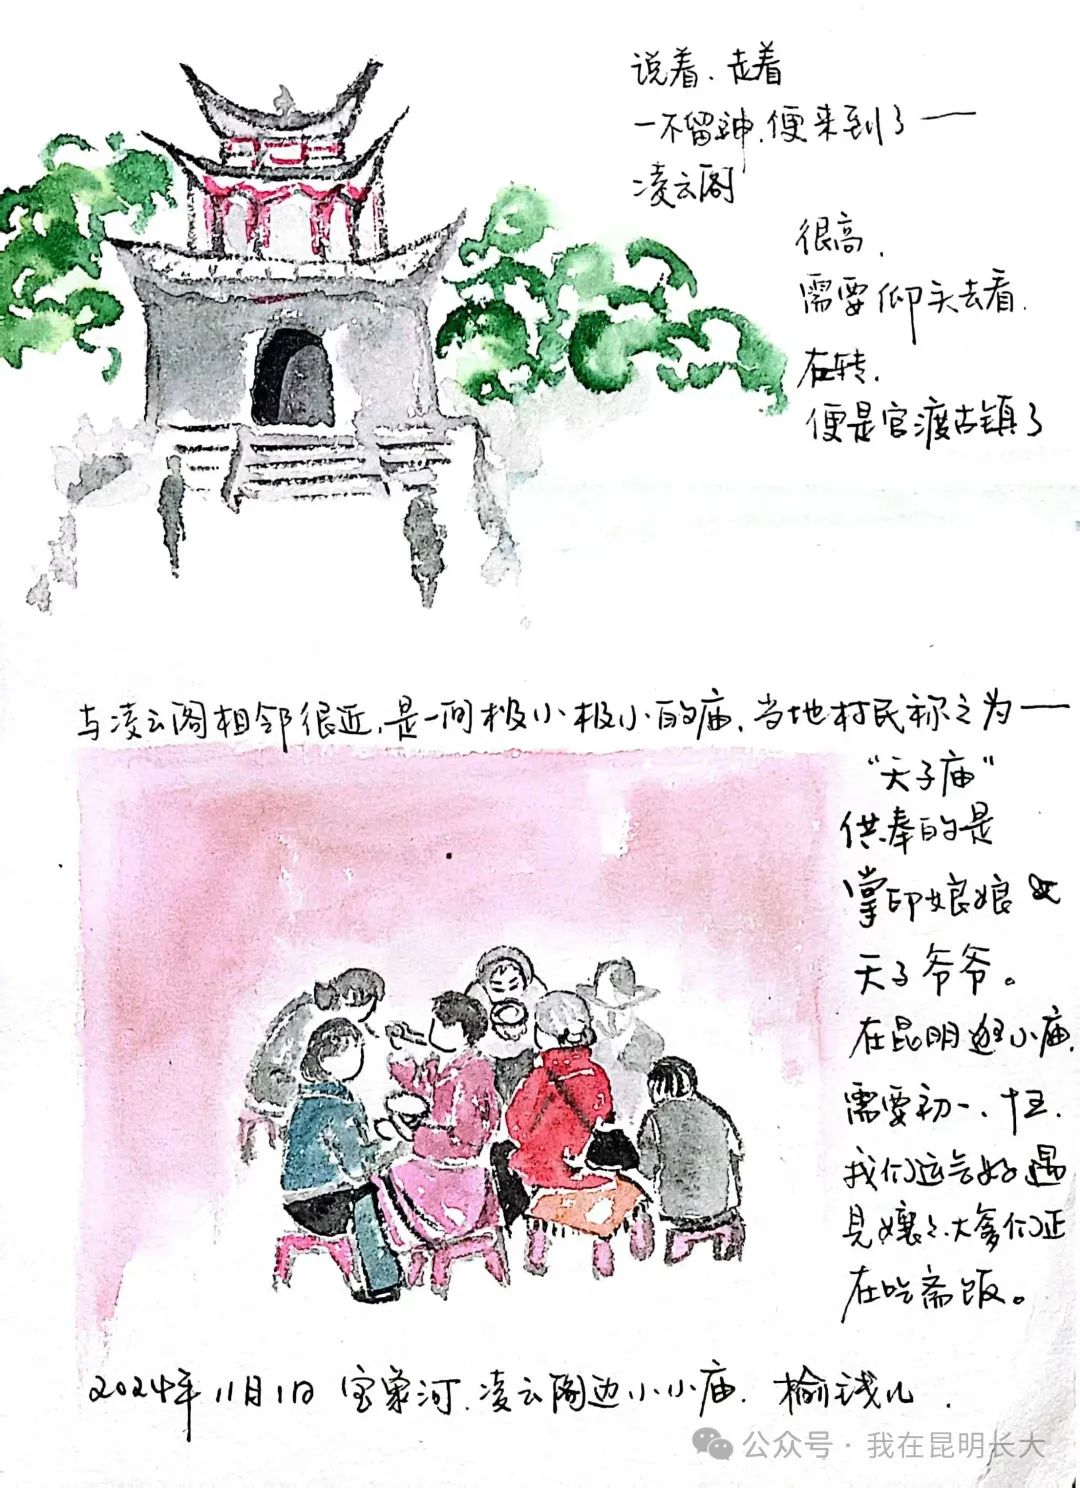 说着、走着
一不留神,便来到了——
凌云阁
很高,
需要仰头去看.
在转,
便是官渡古镇了
与凌云阁相邻很近,是一间极小极小的庙,当地村民称之为——
“天子庙”
供奉的是
掌印娘娘
天子爷爷。
在昆明逛小庙,
需要初一、十五,
我们运气好遇
见孃々、大爹们正
在吃斋饭。
2024年11月1日 宝象河.凌云阁边小小庙. 榆钱儿.
公众号·我在昆明长大